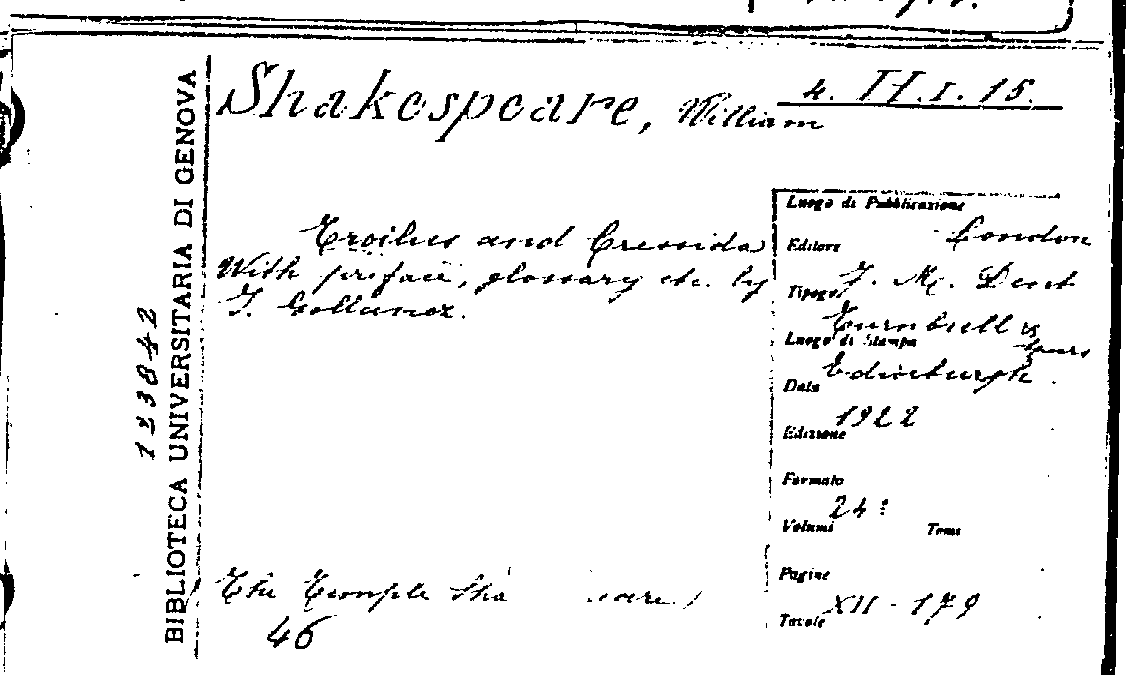 Shakespeare, William
4. II.I. 15.
BIBLIOTECA UNIVERSITARIA DI GENOVA
123842
Troilus and Cressida
With preface, glossary etc. by
I. Gollancz.
Luogo di Pubblicazione
London
Editore
J. M. Dent
Tipogr.
Turnbull &
Spears
Luogo di Stampa
Edinburgh.
Data
1922
Edizione
Formato
24º
Volumi Tomi
Pagine
XII - 179
Tavole
The Temple Sha
46